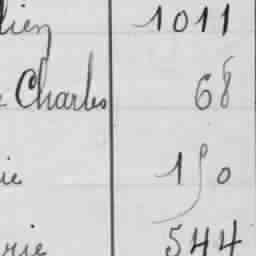 lien 1011
Charles 68
ie 150
rie 544